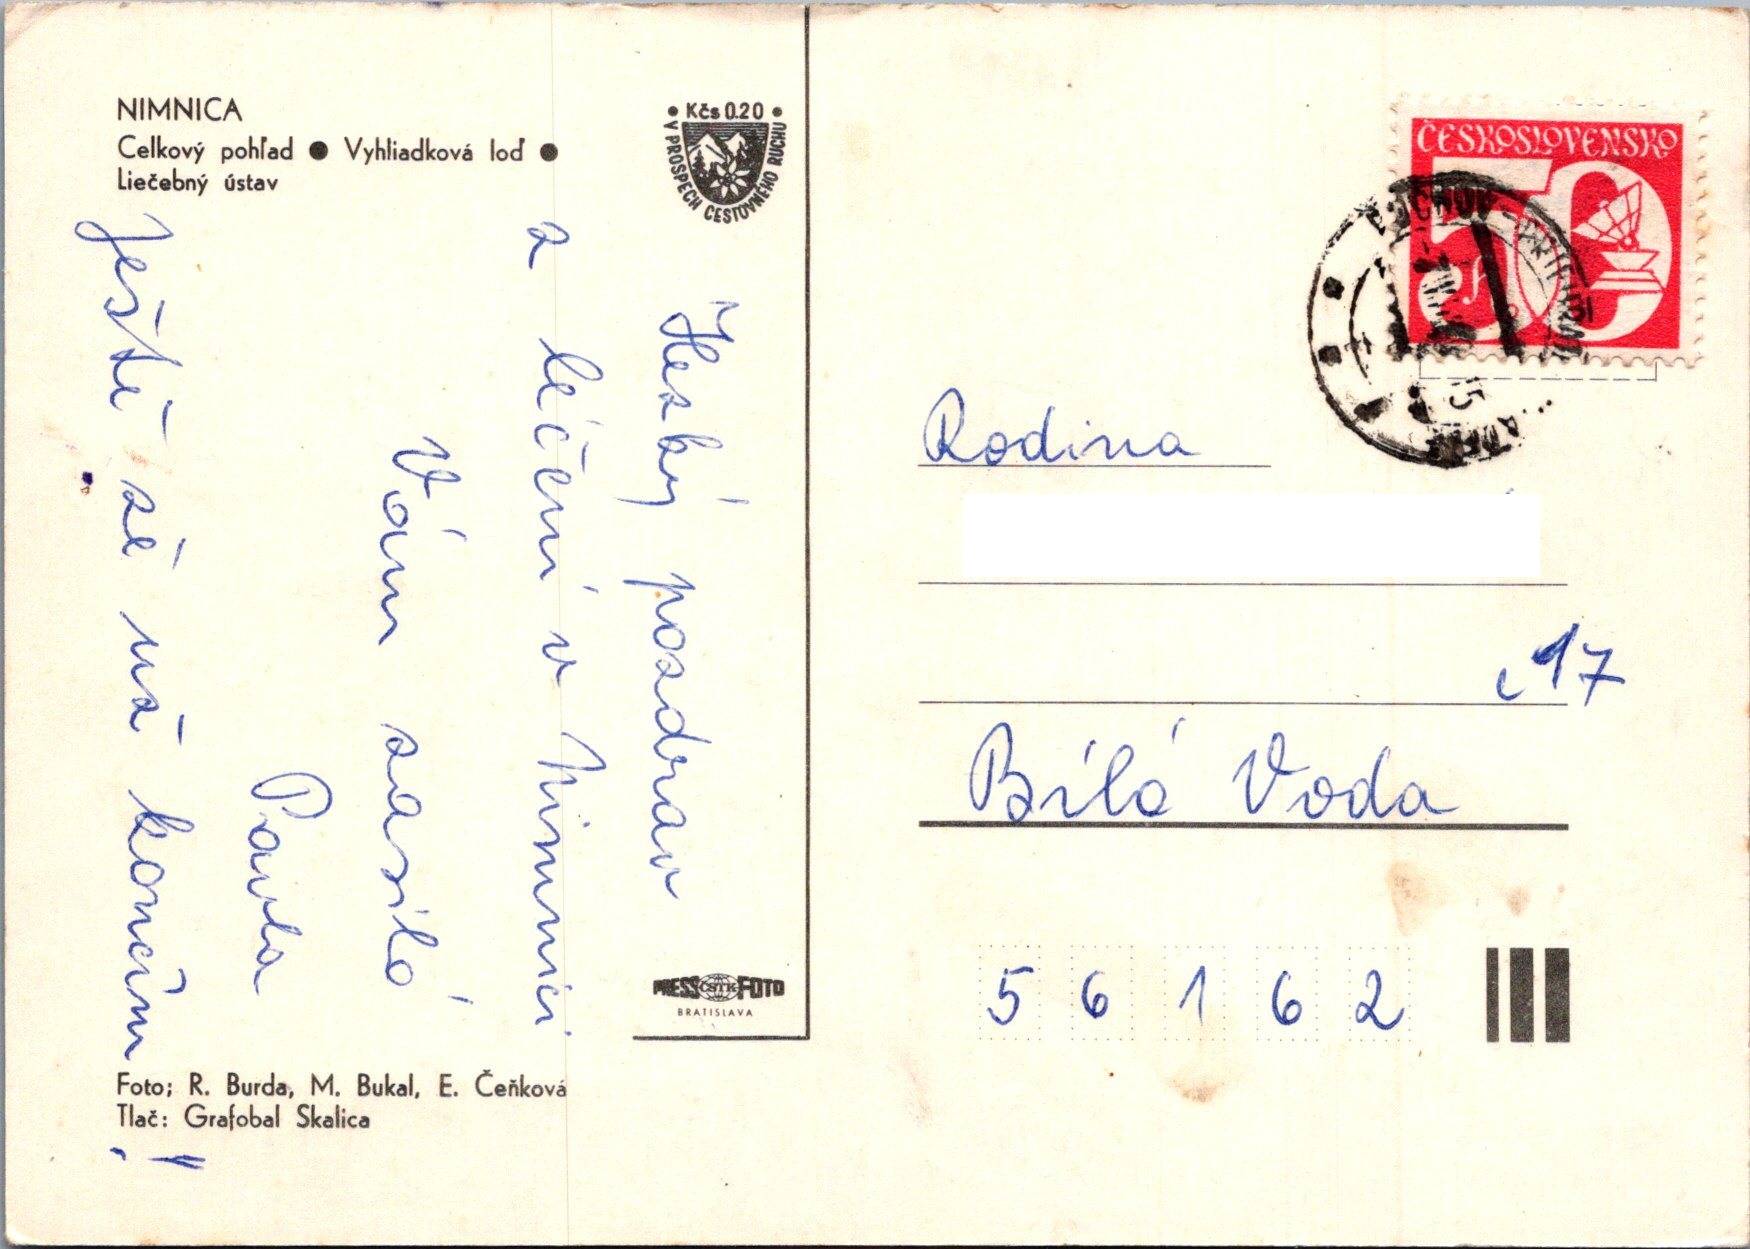 NIMNICA
Celkový pohľad ● Vyhliadková loď ●
Liečebný ústav
• Kčs 0.20 •
V PROSPECH CESTOVNÉHO RUCHU
Hezký pozdrav
z léčení v Nimnici
Vám zasílá
Pavla
Ještě se vš končím !"
PRESS ČSTK FOTO
BRATISLAVA
Foto; R. Burda, M. Bukal, E. Čeňková
Tlač: Grafobal Skalica
ČESKOSLOVENSKO
50 f
PÚCHOV
Rodina
17
Bílá Voda
56162